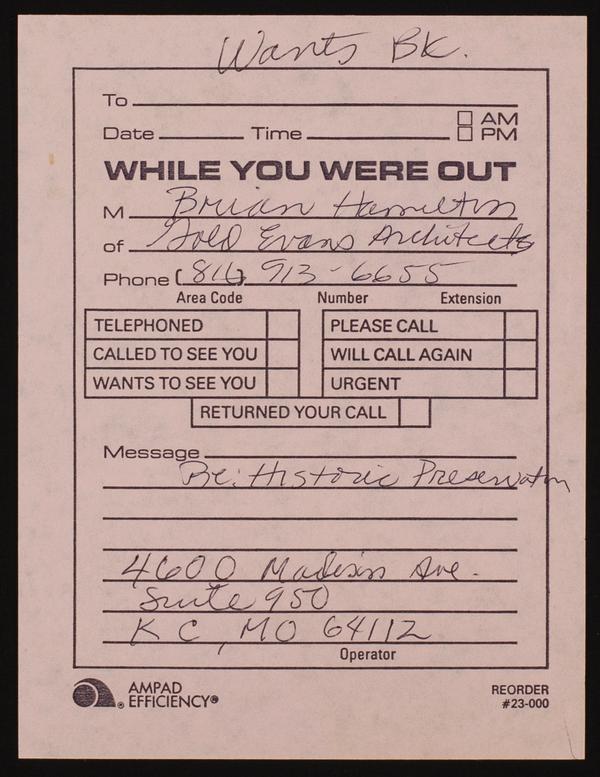 Wants Bk.
To
Date Time AM
PM
WHILE YOU WERE OUT
M Brian Hamilton
of Gold Evans Architects
Phone (816) 913-6655
Area Code Number Extension
TELEPHONED PLEASE CALL
CALLED TO SEE YOU WILL CALL AGAIN
WANTS TO SEE YOU URGENT
RETURNED YOUR CALL
Message
Re: Historic Preservation
4600 Madison Ave.
Suite 950
KC, MO 64112
Operator
AMPAD EFFICIENCY®
REORDER #23-000